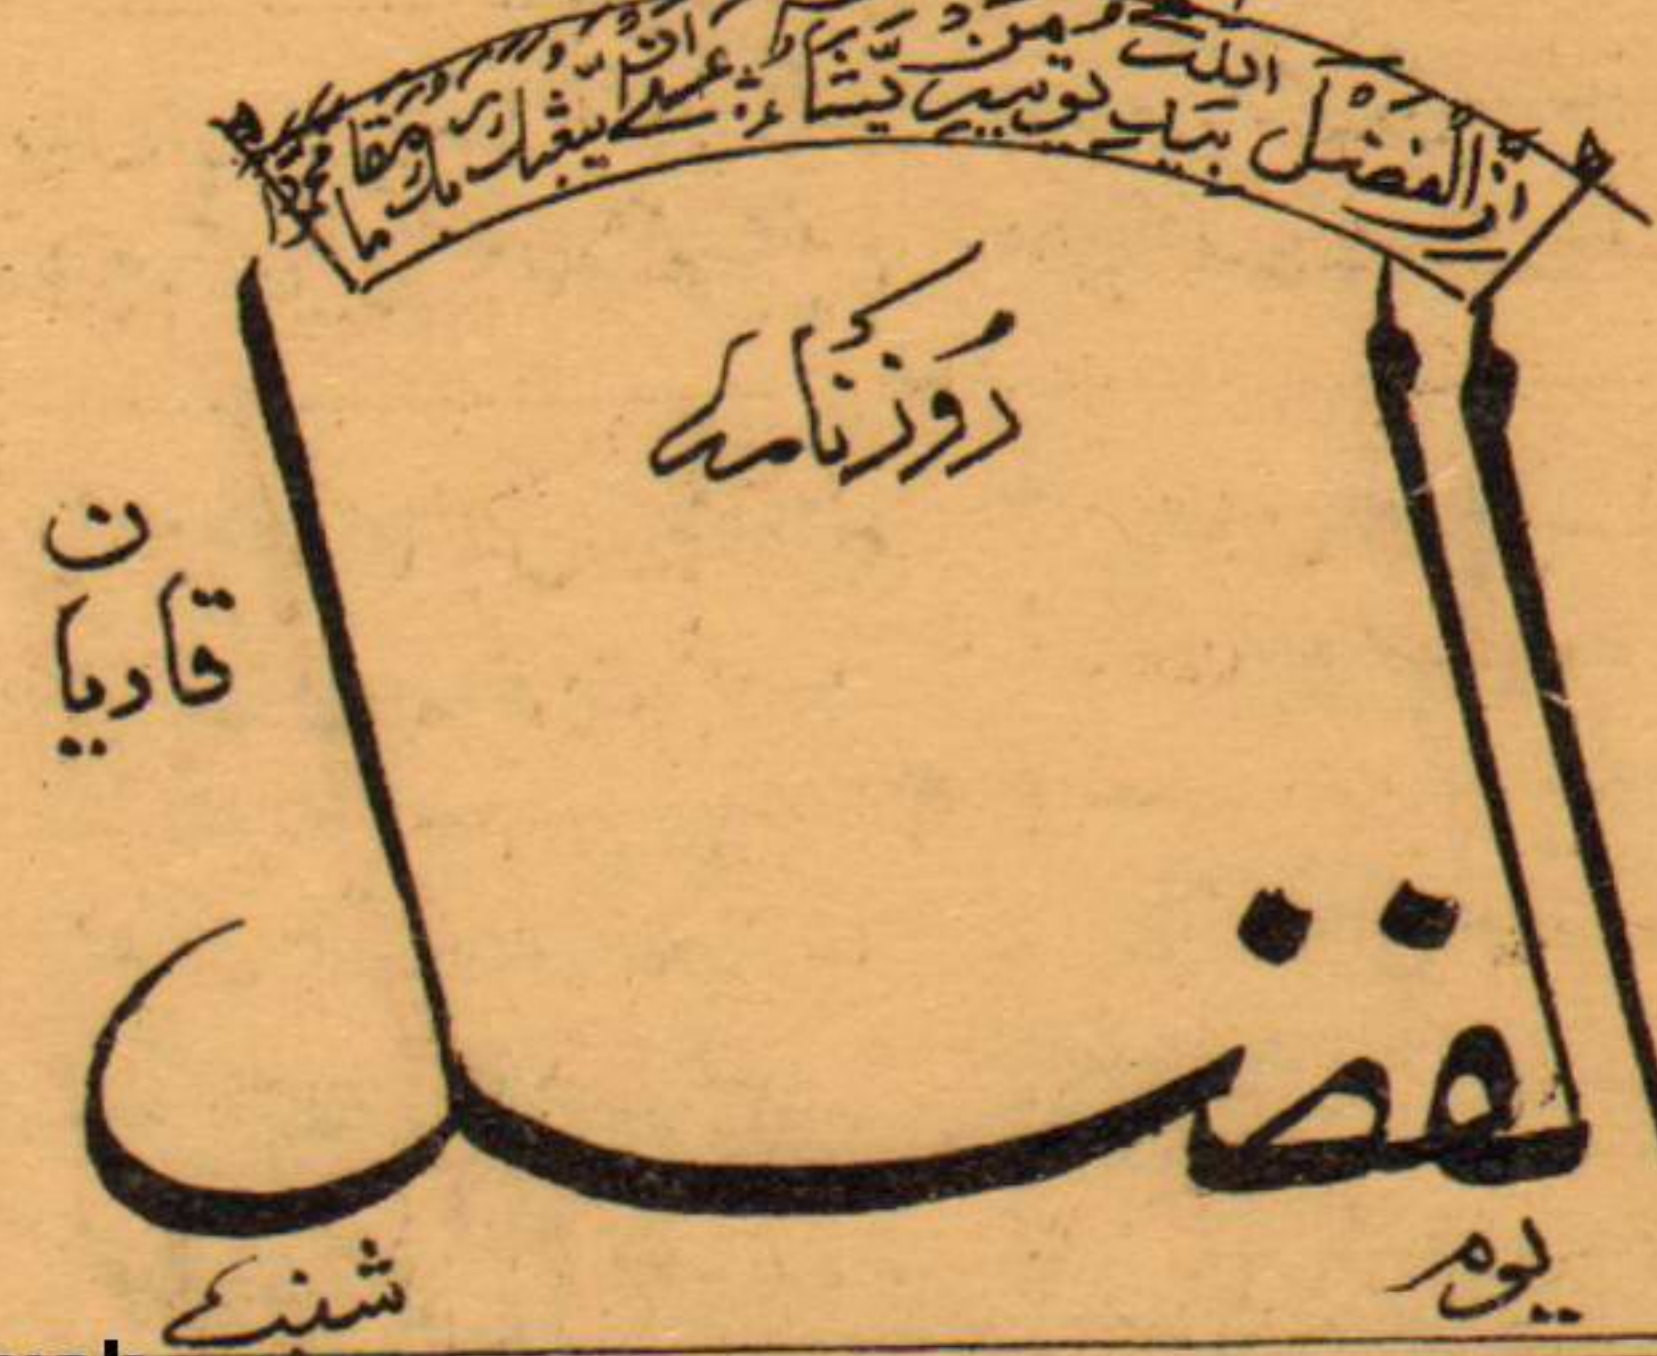 ان الفضل بید الله یوتیه من یشاء عسىٰ ان یبعثك ربك مقاما محمودا
روزنامہ
الفضل
قادیان
یوم
شنبہ